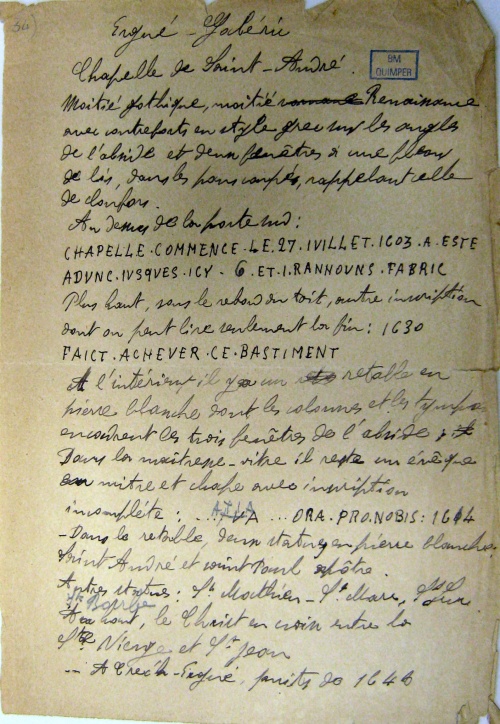 Ergué-Gabéric
BM
QUIMPER
Chapelle de Saint-André.
Moitié gothique, moitié romane Renaissance
avec contreforts en style grec sur les angles
de l'abside et deux fenêtres à une fleur
de lis, dans les pans coupés, rappelant celle
de
Au dessus de la porte sud:
CHAPELLE.COMMENCE.LE.27.IVILLET.1603.A.ESTE
ADVNC.IVSQVES.ICY - G.ET.I.RANNOUNS.FABRIC
Plus haut, sous le rebord du toit, autre inscription
dont on peut lire seulement la fin: 1630
FAICT.ACHEVER.CE.BASTIMENT
A l'intérieur il y a un retable en
pierre blanche dont les colonnes et les tympans
encadrent les trois fenêtres de l'abside;
Dans la maîtresse-vitre il reste un évêque
en mitre et chape avec inscription
incomplète: ... ... ORA.PRO.NOBIS: 1644
- Dans le retable, deux statues en pierre blanche:
Saint André et saint Paul apôtre.
Autres statues: St Mathieu - St Marc, St Luc
Ste Barbe
Au haut, le Christ en croix entre la
Ste Vierge et St Jean
-- A Creac'h-Ergué, puits de 1646